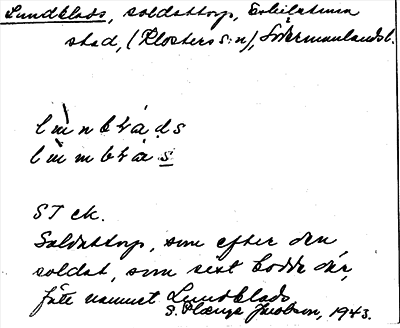 Lundblads, soldattorp, Eskilstuna
stad, (Klosters sn), Södermanlands l.
ST ek.
Soldattorp, som efter den
soldat, som sist bodde där,
fått namnet Lundblads
S. Jacobson, 1943.